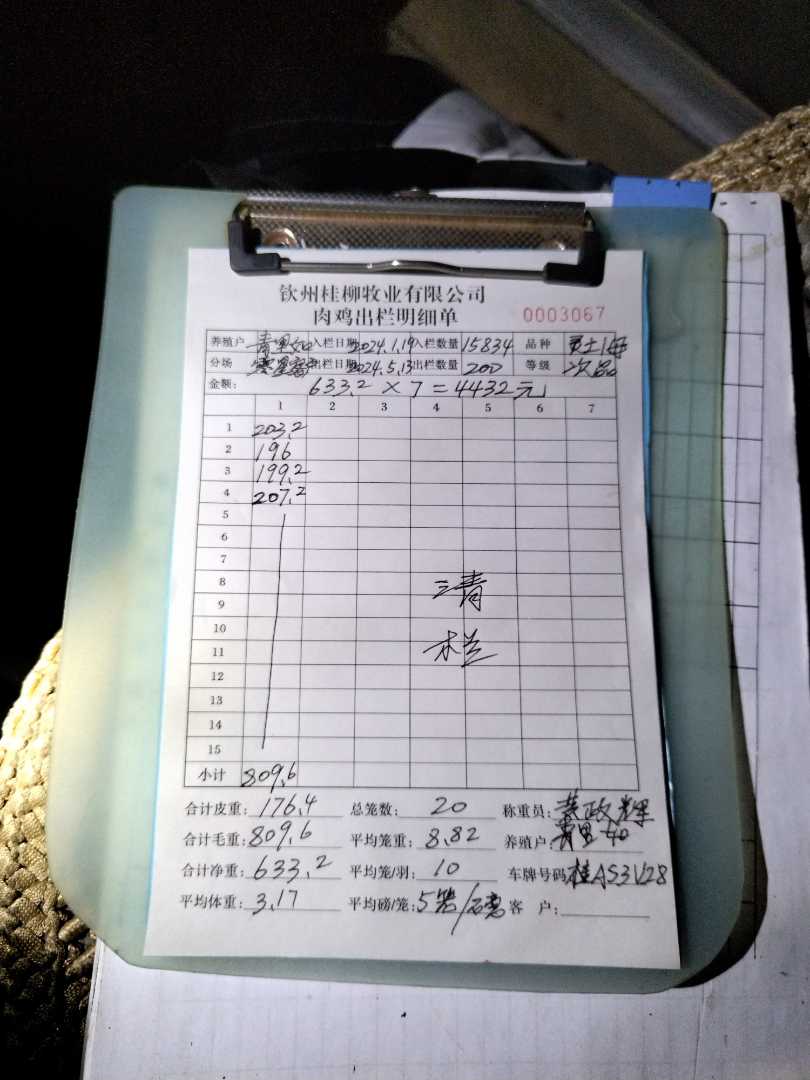 钦州桂柳牧业有限公司
肉鸡出栏明细单 0003067
养殖户 入栏日期 2024.1.19 入栏数量 15834 品种
分场 出栏日期 2024.5.13 出栏数量 200 等级 次品
金额: 633.2 × 7 = 4432元
1 2 3 4 5 6 7
1 203.2
2 196
3 199.2
4 207.2
5
6
7
8 清
9
10
11 栏
12
13
14
15
小计 809.6
合计皮重: 176.4 总笼数: 20 称重员: 政辉
合计毛重: 809.6 平均笼重: 8.82 养殖户:
合计净重: 633.2 平均笼/羽: 10 车牌号码 桂AS3V28
平均体重: 3.17 平均磅/笼: 5笼/磅 客 户: